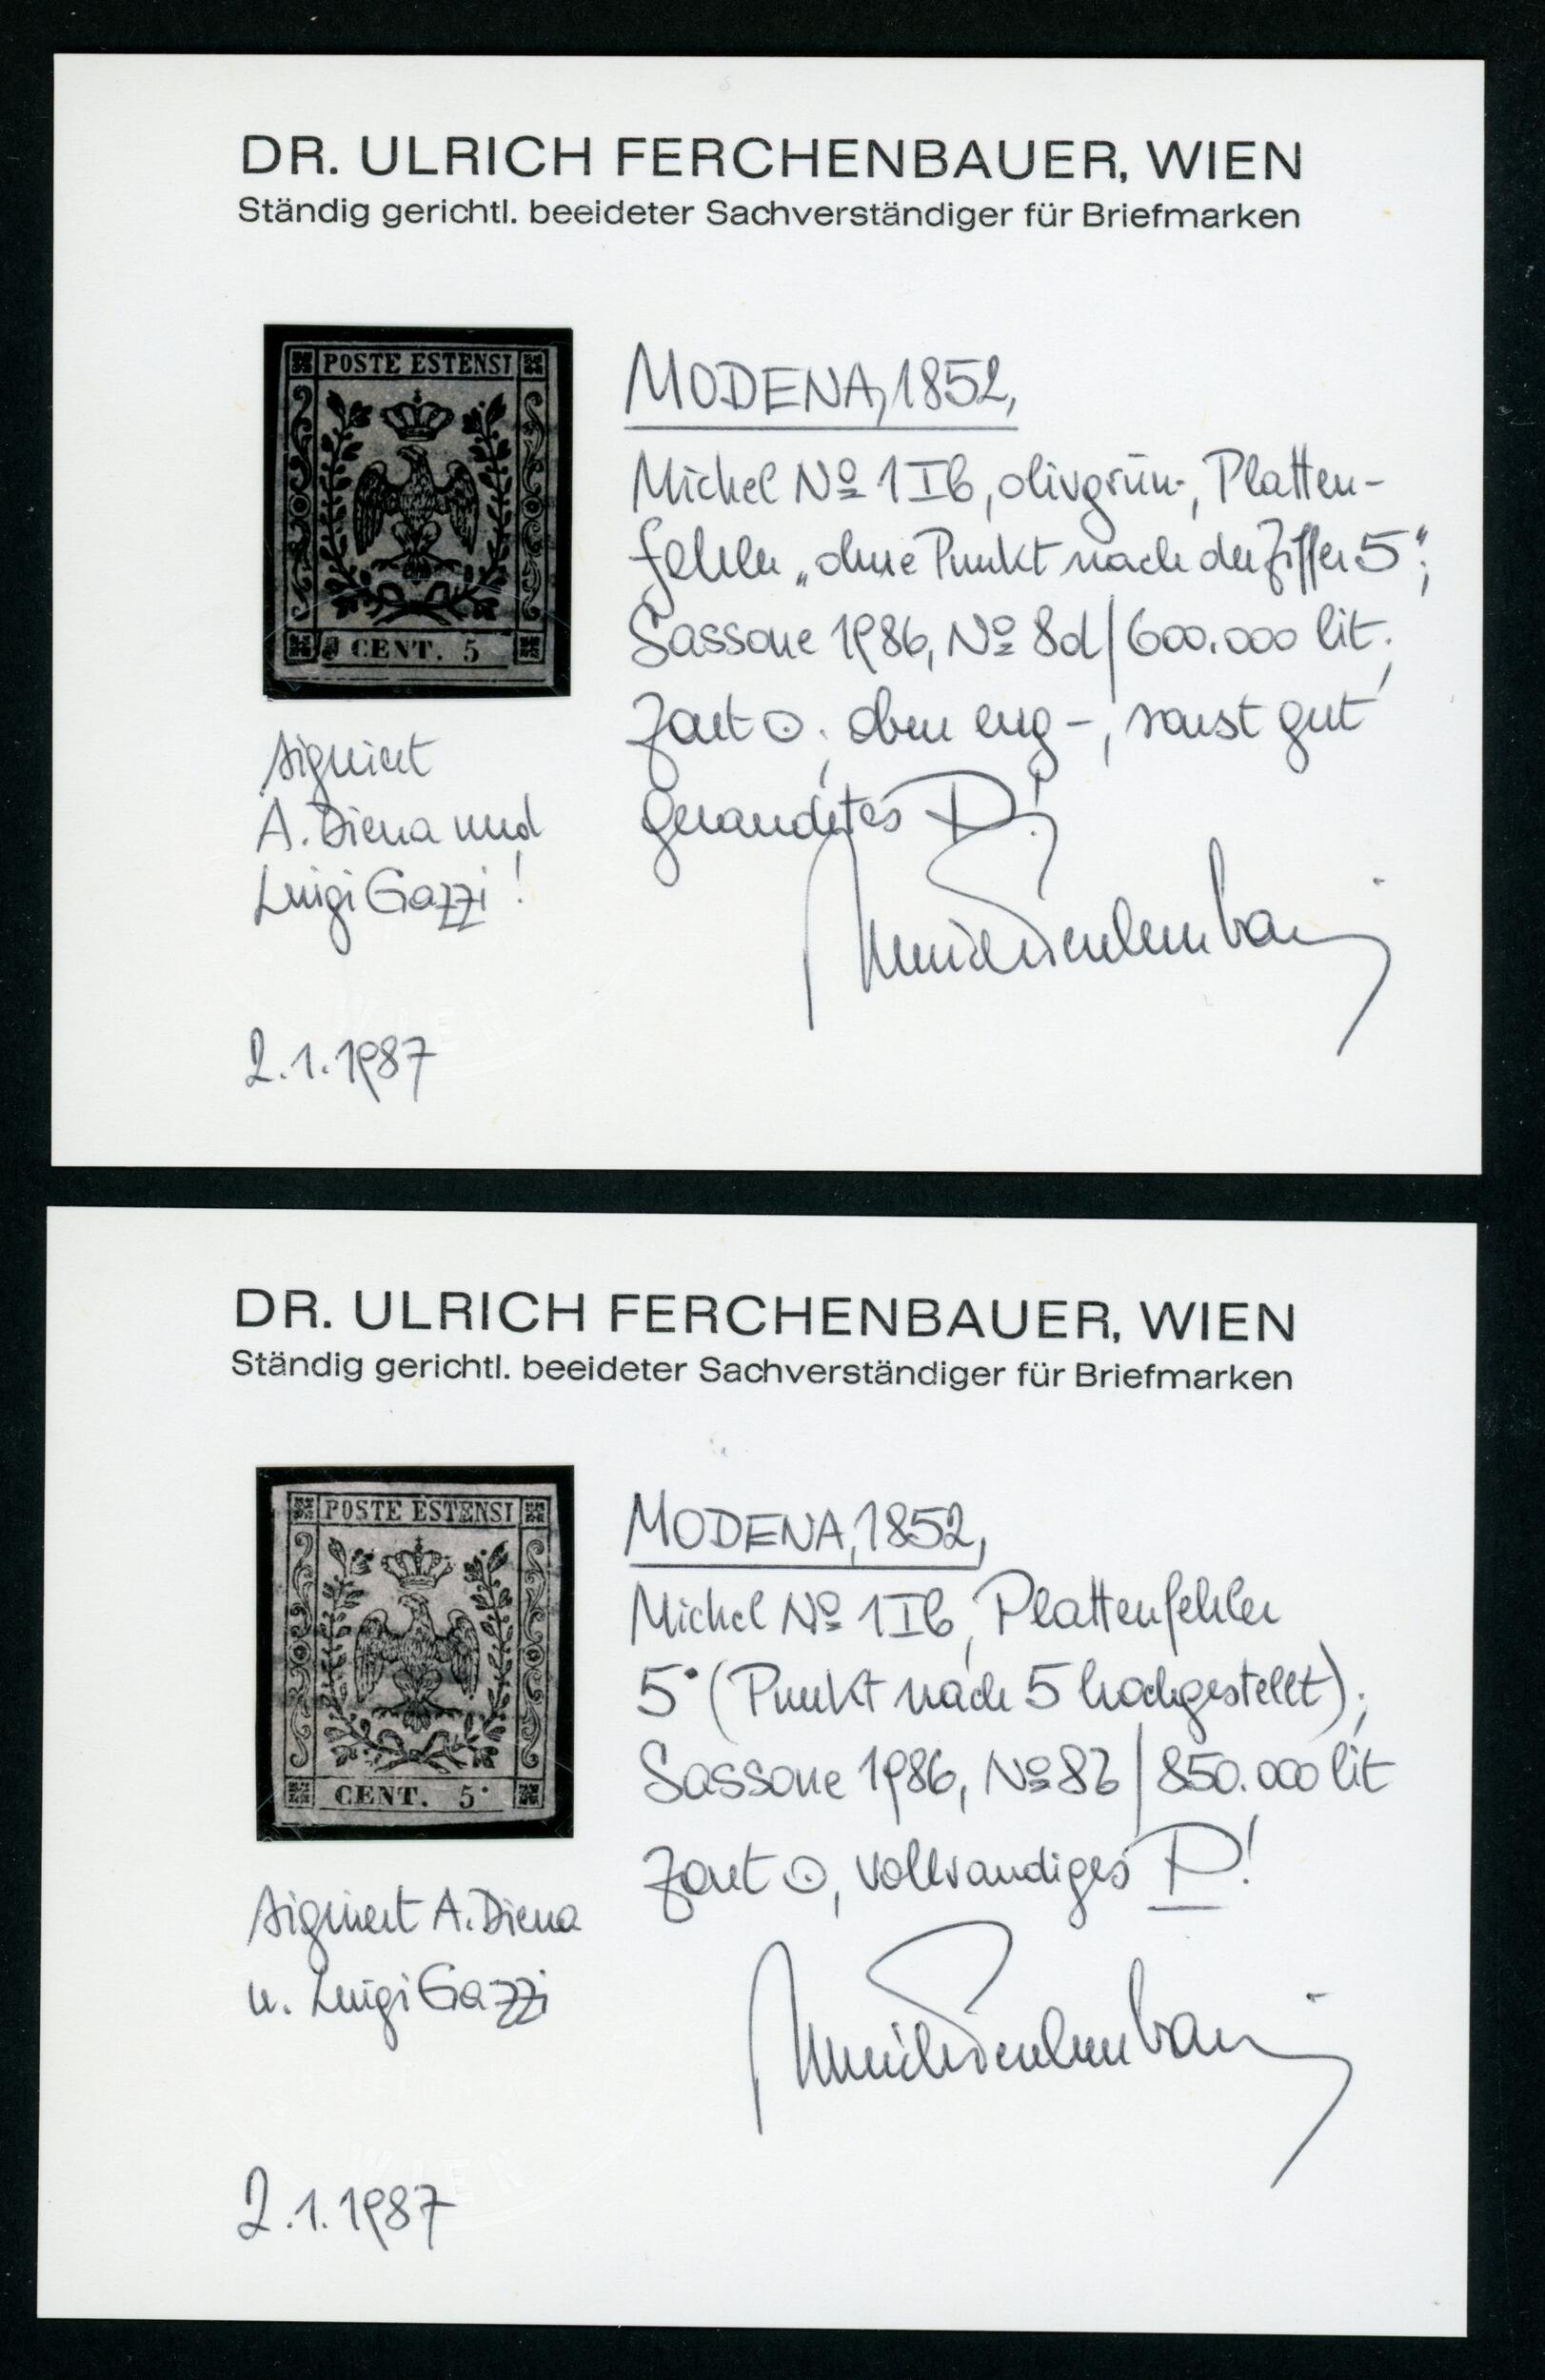 DR. ULRICH FERCHENBAUER, WIEN
Ständig gerichtl. beeideter Sachverständiger für Briefmarken
POSTE ESTENSI
CENT. 5
MODENA, 1852,
Michel No 1 I b, olivgrün-, Platten-
fehler „ohne Punkt nach der Ziffer 5";
Sassone 1986, No 8d/600.000 lit.;
Zart ⊙; oben eng-, sonst gut
gerandetes P.!
signiert
A. Diena und
Luigi Gazzi!
2.1.1987
WIEN
DR. ULRICH FERCHENBAUER, WIEN
Ständig gerichtl. beeideter Sachverständiger für Briefmarken
POSTE ESTENSI
CENT. 5·
MODENA, 1852,
Michel No 1 I b, Plattenfehler
5· (Punkt nach 5 hochgestellt);
Sassone 1986, No 8b/850.000 lit
Zart ⊙, vollrandiges P!
signiert A. Diena
u. Luigi Gazzi
2.1.1987
WIEN